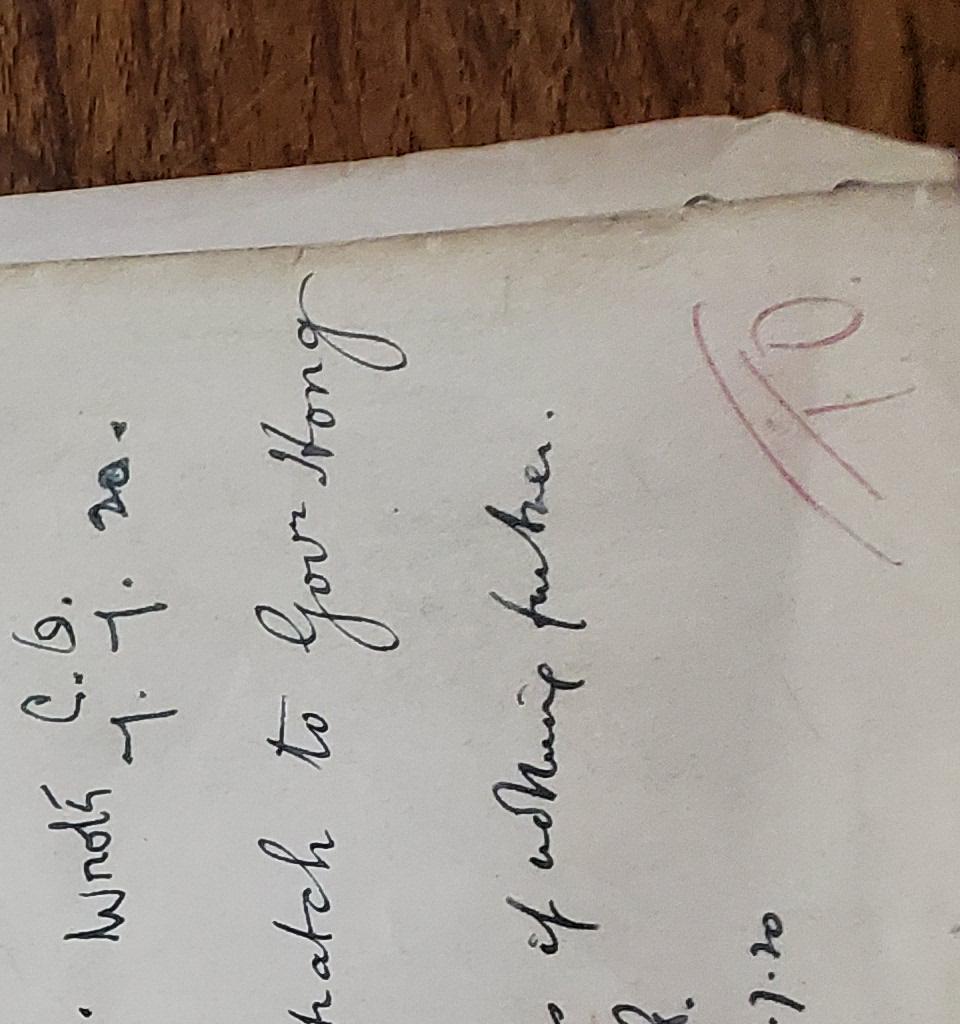 . Wrote C.O.
7. 7. 20.
patch to Govr Hong
if nothing further.
R.
.7.20